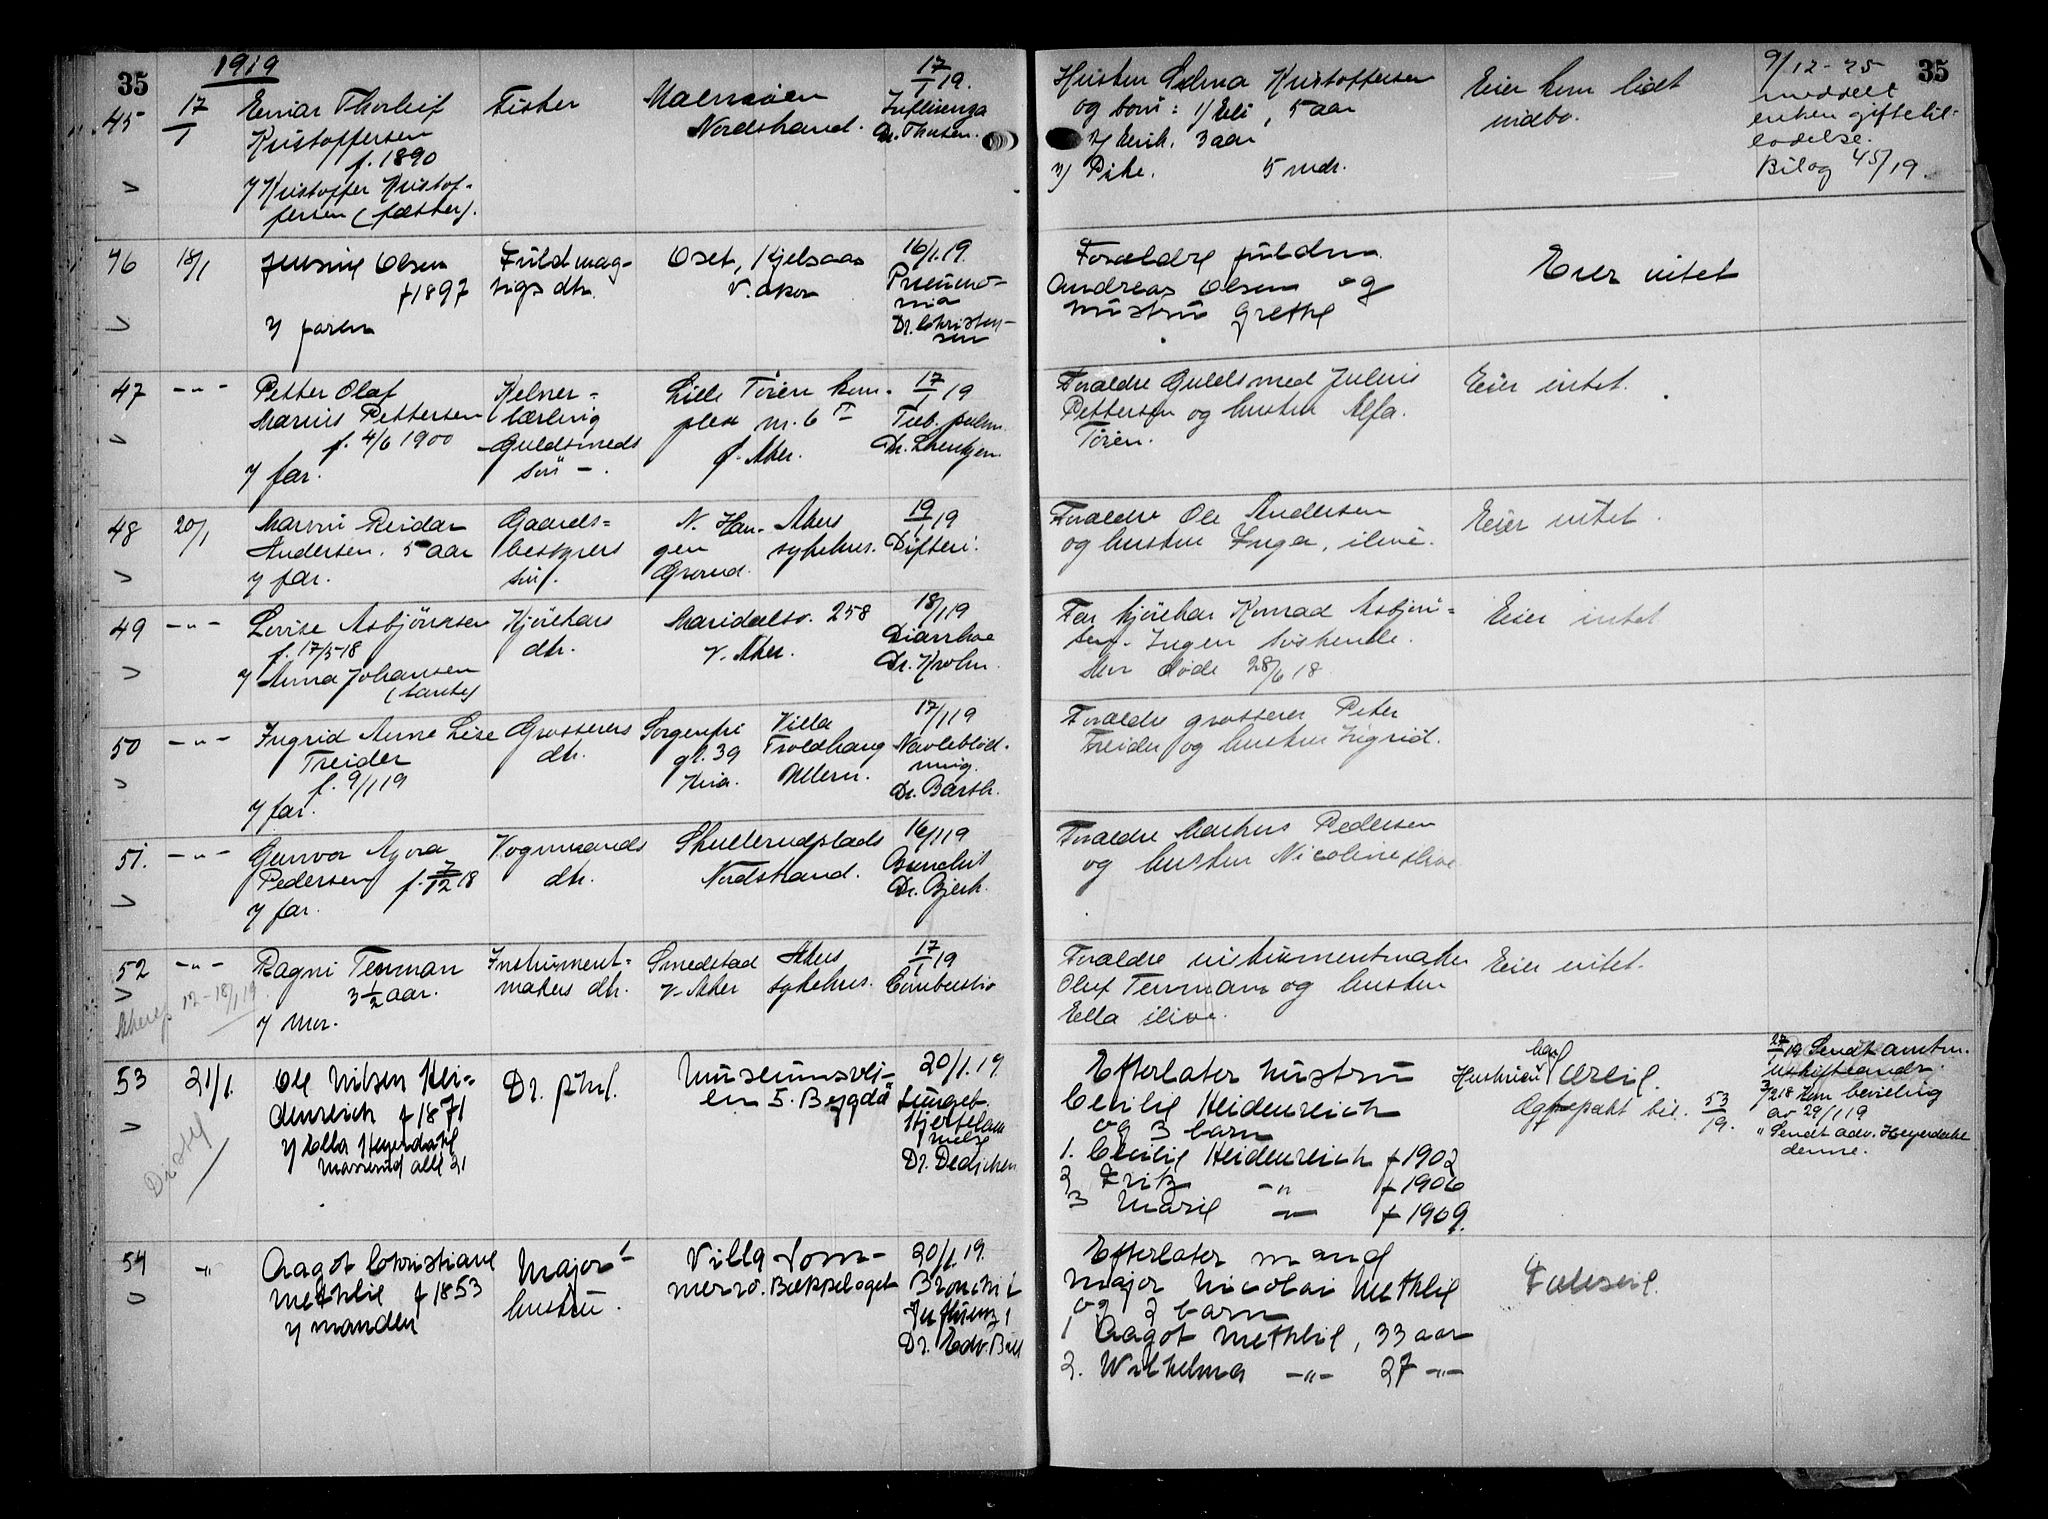 35
1919
45
17/1
Einar Thorleif
Kristoffersen
f. 1890
v/ Kristoffer Kristof-
fersen (fætter).
Fisker
Malmøen
Nordstrand.
17/1 19.
Influenza
Dr. Thesen.
Hustru Selma Kristoffersen
og barn: 1/ Eli, 5 aar
2/ Erik. 3 aar
3/ Pike. 5 mdr.
Eier kun lidt
indbo.
9/12-25
meddelt
enken giftetil-
ladelse.
Bilag 45/19.
35
46
18/1
Jensine Olsen
f 1897
v/ faren
Fuldmæg-
tigs dtr.
Oset, Kjelsaas
V. Aker
16/1.19.
Pneumo-
nia
Dr. Christen-
sen
Forældre fuldm.
Andreas Olsen og
hustru Grethe
Eier intet
47
-"-
Petter Olaf
Marius Pettersen
f. 4/6 1900
v/ far.
Kelner-
lærling
Guldsmeds
søn -.
Lille Tøien kom-
plex nr. 6 I
Ø. Aker.
17/1 19
Tub. pulm.
Forældre Guldsmed Julius
Pettersen og hustru Alfa.
Tøien.
Eier intet.
48
20/1
Marvin Reidar
Andersen. 5 aar
v/ far.
Gaards=
bestyrers
søn.
N. Hau-
gen
Grorud.
Akers
sykehus.
19/1 19
Difteri.
Forældre Ole Andersen
og hustru Inga, ilive.
Eier intet.
49
-"-
Lovise Asbjørnsen
f. 17/5 18
v/ Anna Johansen
(tante)
Kjørekars
dtr.
Maridalsv. 258
V. Aker.
18/1 19
Diarrhoe
Dr. Krohn.
Far kjørekar Konrad Asbjørn=
sen. Ingen søskende.
Mor døde 28/6 18.
Eier intet
50
-"-
Ingrid Anne Lise
Treider
f. 9/1 19
v/ far.
Grosserers
dtr.
Sorgenfri
gt. 39
Kria.
Villa
Troldhaug
Ullern.
17/1 19
Navleblød-
ning.
Dr. Barth.
Forældre grosserer Peter
Treider og hustru Ingrid.
51.
-"-
Gunvor Agora
Pedersen f. 7/12 18
v/ far.
Vognmands
dtr.
Skullerudplads
Nordstrand.
16/1 19
Bronchit
Dr. Bjerk.
Forældre Markus Pedersen
og hustru Nicoline ilive
52
-"-
Akers 12-18/1 19.
Ragni Tenman
3 1/2 aar.
v/ Mor.
Instrument=
makers dtr.
Smedstad
V. Aker
Akers
sykehus.
17/1 19
Combustio
Forældre instrumentmaker
Oluf Tenman og hustru
Ella ilive.
Eier intet.
53
21/1.
Ole Nilsen Hei=
denreich f 1871
v/ Ella Heyerdahl
Dr. phil.
Museumsvei-
en 5. Bygdø
20/1.19.
Lungebet.
Hjertelam
melse
Dr. Dedichen
Efterlater hustru
Cecilie Heidenreich
og 3 barn
1. Cecilie Heidenreich f 1902
2 Fritz -"- f 1906
3 Marie -"- f 1909.
Hustruen har
Ægtepakt bil. 53/19.
27/1 19 Sendt amtm.
3/2 18 Kgl. bevilling
av 29/1 19
" Sendt adv. Heyerdahl
denne.
54
"
Aagot Christiane
Methlie f 1853
v/ manden
Major
hustru.
Villa Som-
merro. Bækkelaget
20/1.19.
Bronchit
Influenza
Dr. Edv. Bull
Efterlater mand
Major Nicolai Methlie
og 2 barn
1 Aagot Methlie, 33 aar
2. Wilhelma -"- 27 -"-
Fælleseie.